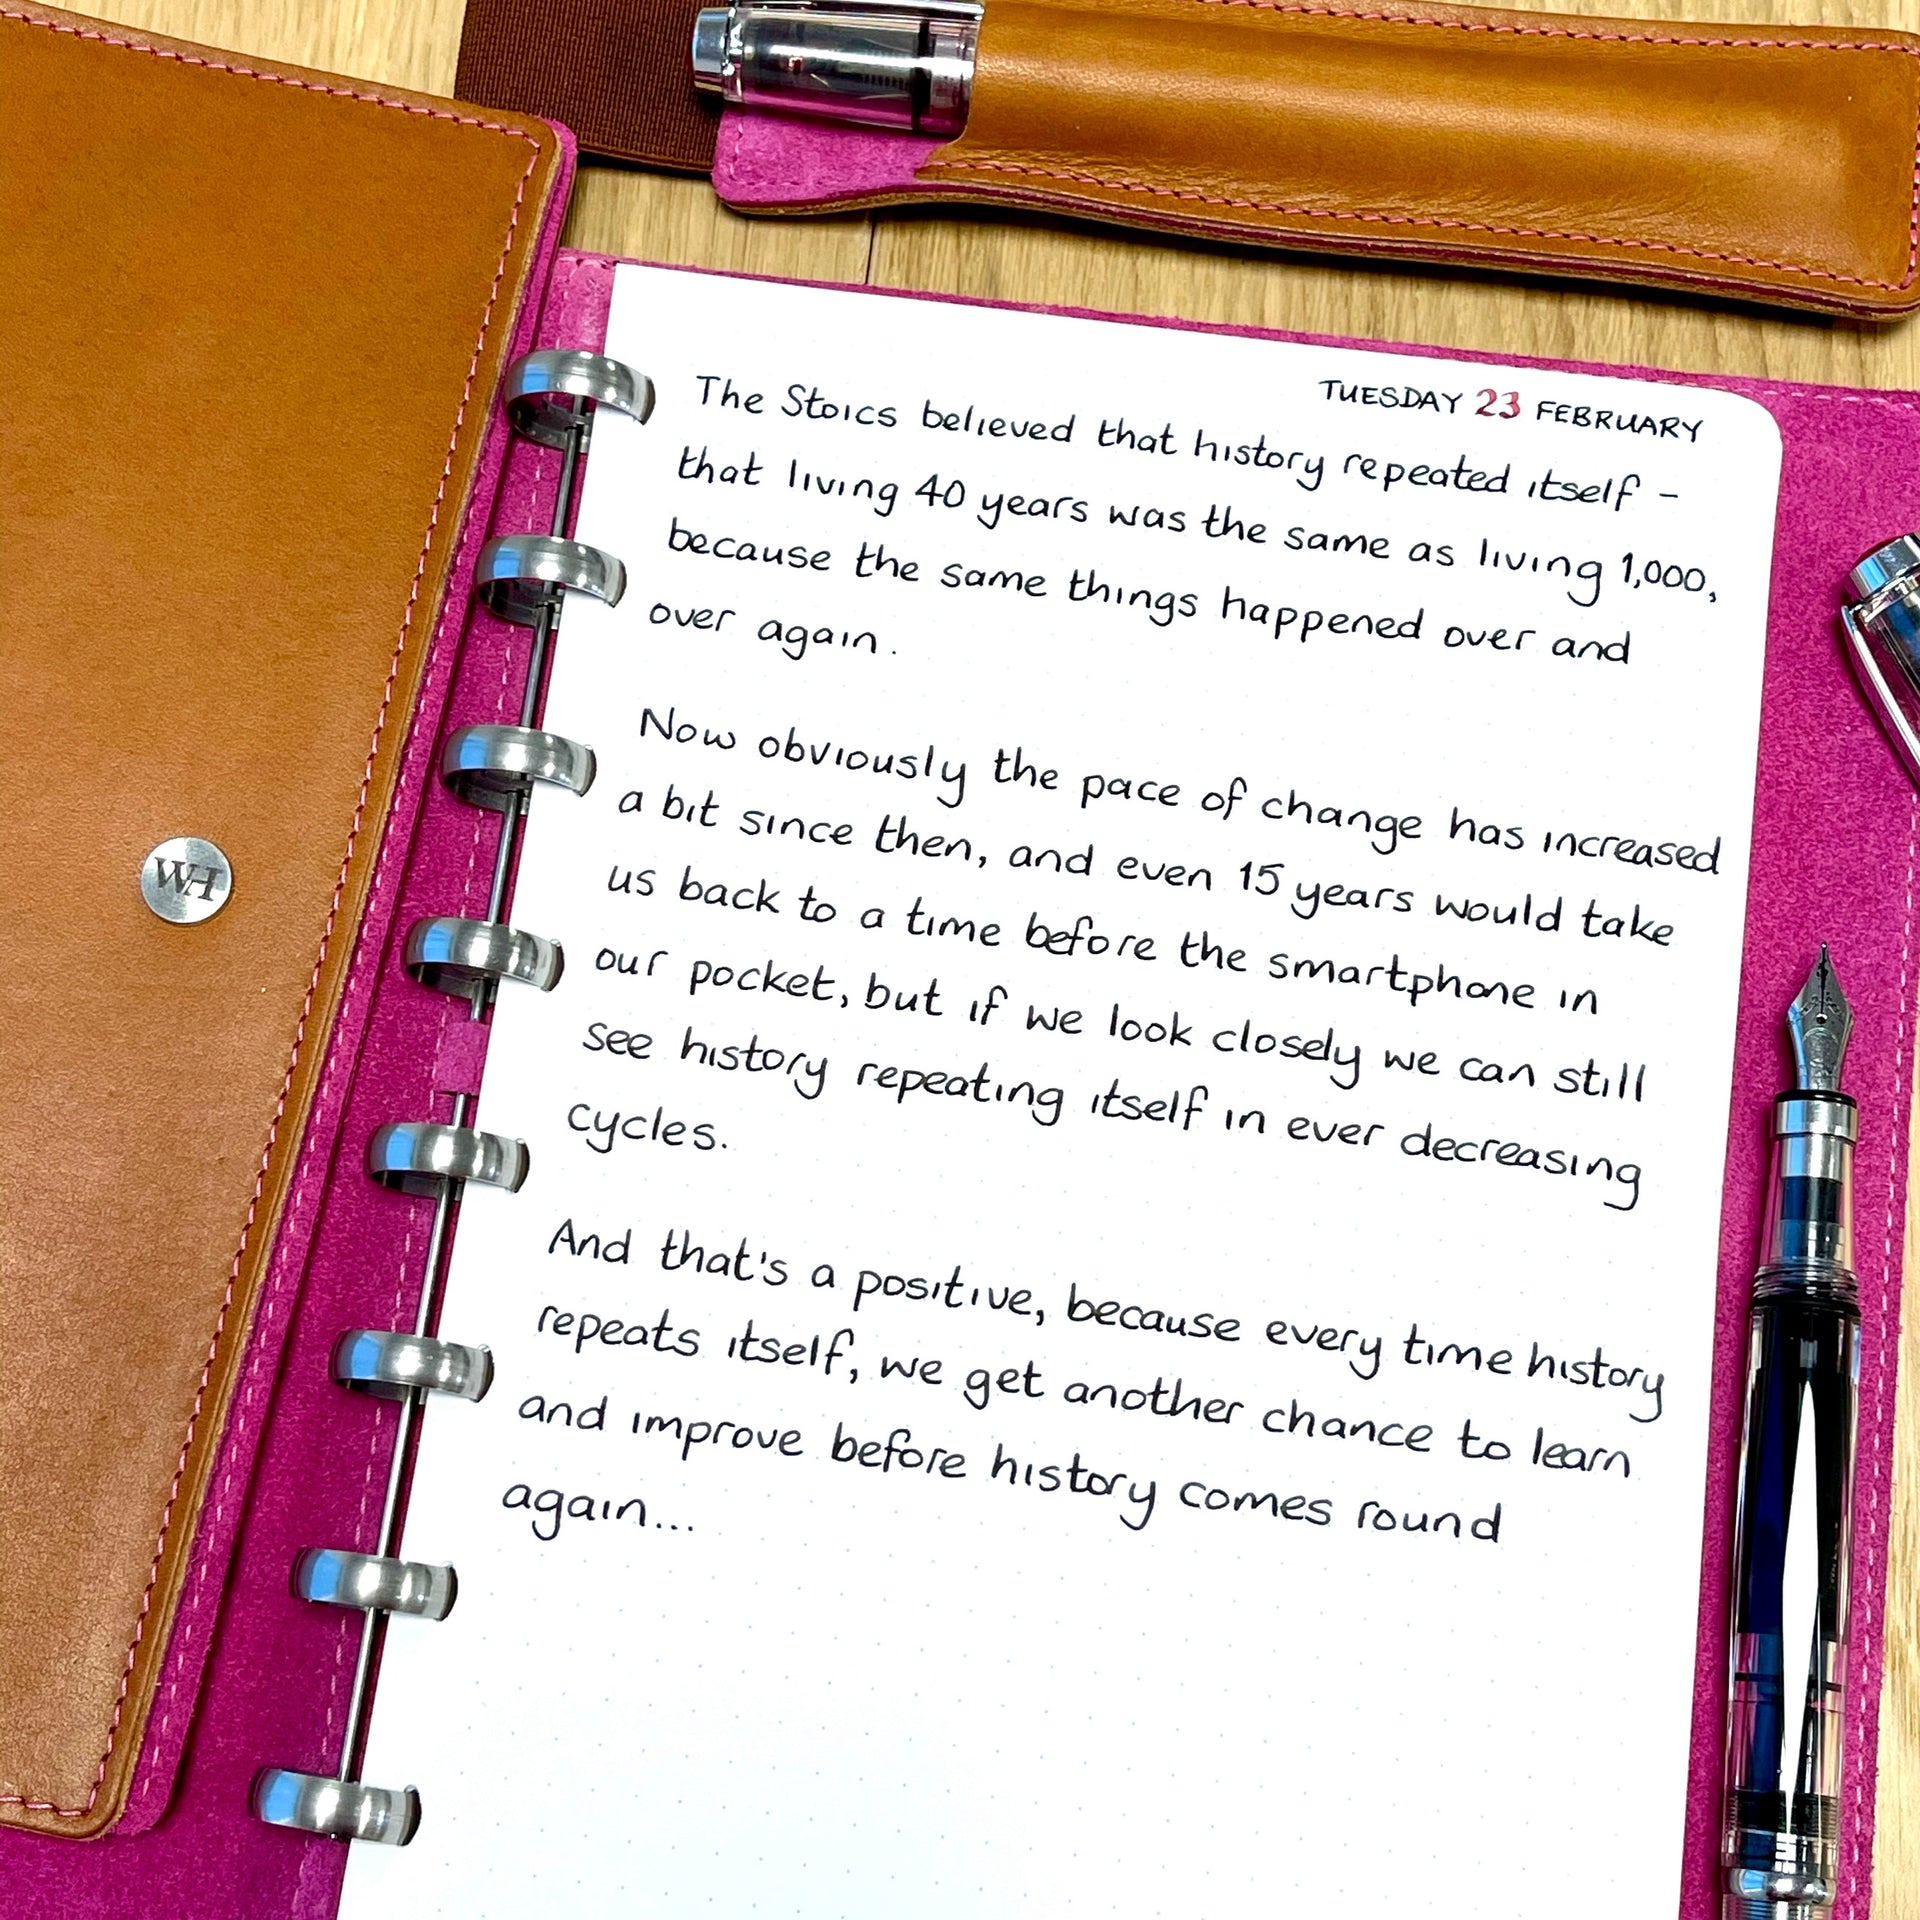 TUESDAY 23 FEBRUARY
The Stoics believed that history repeated itself -
that living 40 years was the same as living 1,000,
because the same things happened over and
over again.
Now obviously the pace of change has increased
a bit since then, and even 15 years would take
us back to a time before the smartphone in
our pocket, but if we look closely we can still
see history repeating itself in ever decreasing
cycles.
And that's a positive, because every time history
repeats itself, we get another chance to learn
and improve before history comes round
again...
WH